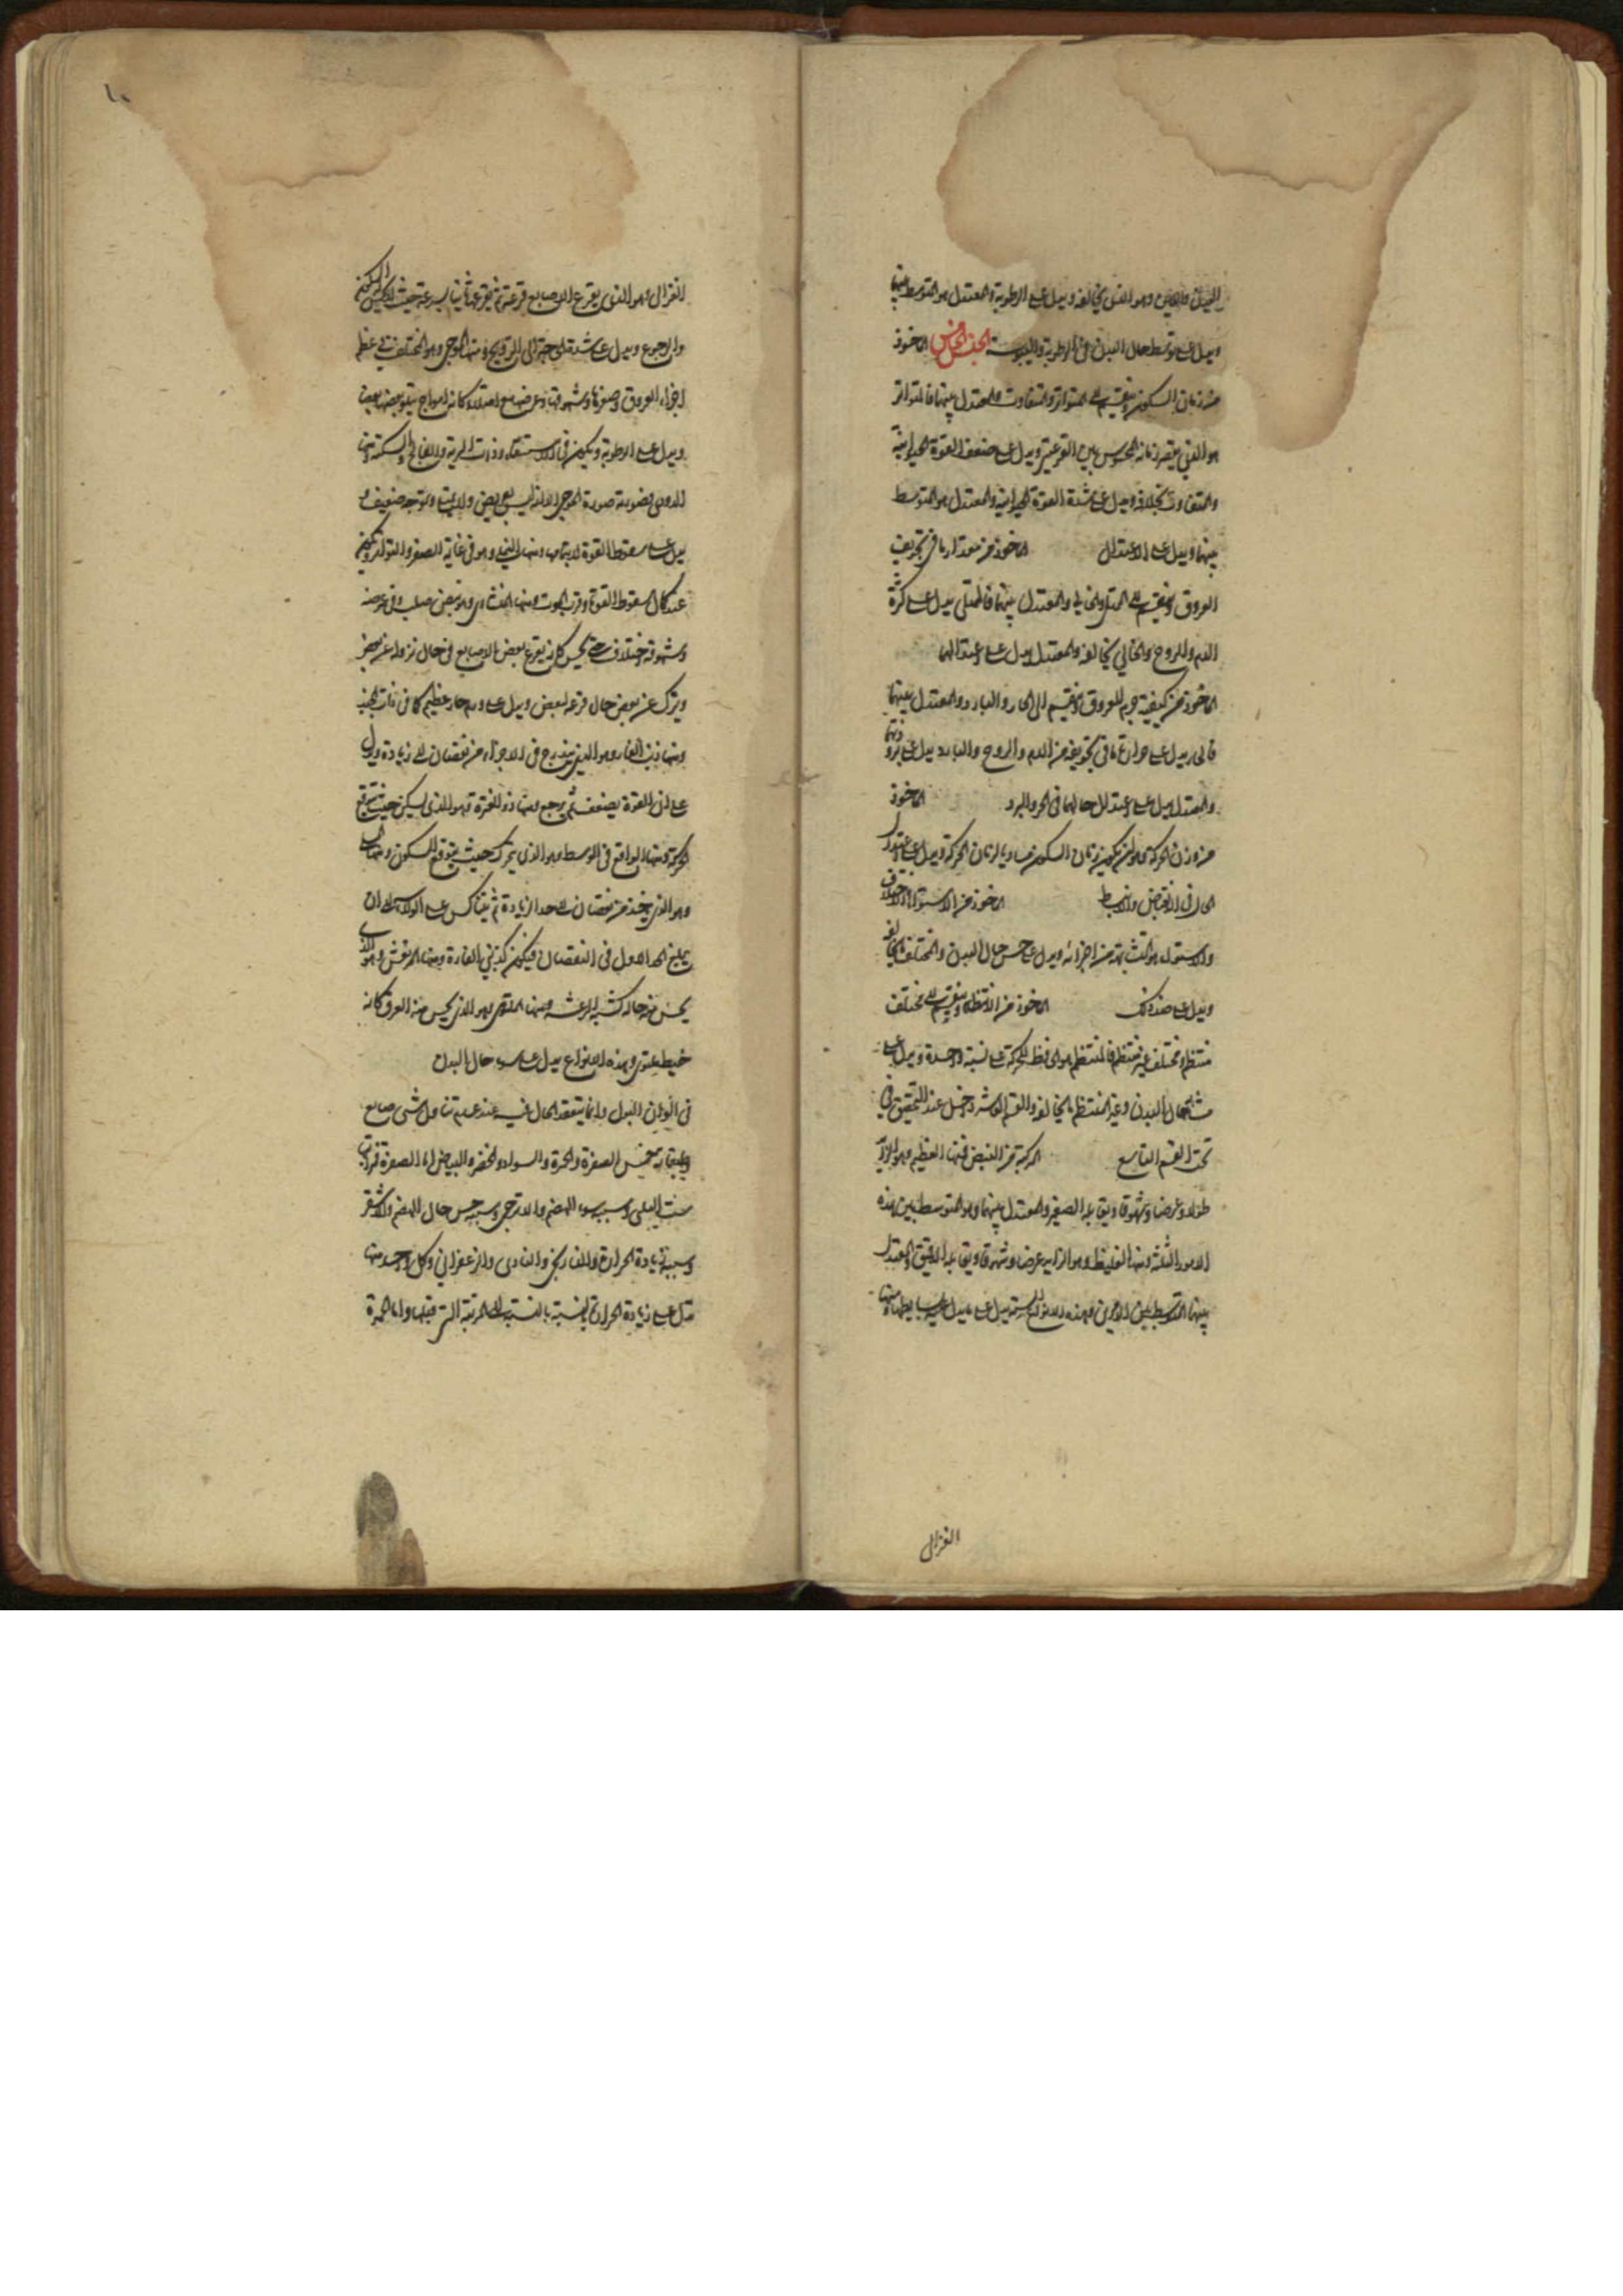 اليبس واللين وهو الذي يخالفه ويدل على الرطوبة والمعتدل هو المتوسط بينهما
ويدل على توسط حال البدن في الرطوبة واليبوسة الجنس الخامس الماخوذ
من زمان السكون وينقسم الى المتواتر والمتفاوت والمعتدل بينهما فالمتواتر
هو الذي يقصر زمانه المحسوس بين القرعتين ويدل على ضعف القوة الحيوانية
والمتفاوت بخلافه ويدل على شدة القوة الحيوانية والمعتدل هو المتوسط
بينهما ويدل على الاعتدال الماخوذ من مقدار ما في تجويف
العروق وينقسم الى الممتلي والخالي والمعتدل بينهما فالممتلي يدل على كثرة
الدم والروح والخالي يخالفه والمعتدل يدل على اعتدالهما
الماخوذ من كيفية جرم العروق وينقسم الى الحار والبارد والمعتدل بينهما
فالحار يدل على حرارة ما في تجويفه من الدم والروح والبارد يدل على برودتهما
والمعتدل يدل على اعتدال حالهما في الحر والبرد الماخوذ
من وزن الحركة وهو ان يكون زمان السكون مساويا لزمان الحركة ويدل على اعتدال
الحال في الانقباض والانبساط الماخوذ من الاستواء والاختلاف
والاستواء هو التشابه من اجزائه ويدل على حسن حال البدن والمختلف يخالفه
ويدل على ضد ذلك الماخوذ من الانتظام وينقسم الى مختلف
منتظم ومختلف غير منتظم فالمنتظم هو الحافظ للحركة على نسبة واحدة ويدل على
حال البدن وغير المنتظم يخالفه والقسم العاشر داخل عند التحقيق في
تحت القسم التاسع المركبة من النبض فمنها العظيم وهو الزايد
طولا وعرضا وشهوقا ويقابله الصغير والمعتدل بينهما وهو المتوسط بين هذه
الامور الثلثة ومنها الغليظ وهو الزايد عرضا وشهوقا ويقابله الدقيق والمعتدل
بينهما المتوسط بين الامرين وهذه الانواع الستة يدل على ما يدل عليه بسايطها ومنها
الغزال
الغزالي وهو الذي يقرع الاصابع قرعة ثم يقرعها ثانيا بسرعة حيث لا يحس السكون
والرجوع ويدل على شدة الحاجة الى الترويح ومنها الموجي وهو المختلف في عظم
اجزاء العروق وصغرها وشهوقها وعرضها مع امتلاء كانه امواج يتلو بعضها بعضا
ويدل على الرطوبة ويكون في الاستسقاء وذات الرية والفالج والسكتة ومنها
الدودي وهو بصورة الموجي الا انه ليس بعريض ولا ممتلي وتموجه ضعيف و
يدل على سقوط القوة لا بتمامها ومنها النملي وهو في غاية الصغر والتواتر ويكون
عند كمال سقوط القوة وقرب الموت ومنها المنشاري وهو نبض صلب وفي عرضه
وشهوقه اختلاف حتى يحس كانه يقرع بعض الاصابع في حال نزوله عن بعض
ويترك عن بعض حال قرعه لبعض ويدل على ورم حار عظيم كما في ذات الجنب
ومنها ذنب الفار وهو الذي يتدرج في الاجزاء من نقصان الى زيادة ويدل
على ان القوة يضعف ثم يرجع ومنها ذو الفترة فهو الذي يسكن حيث يتوقع
الحركة ومنها الواقع في الوسط وهو الذي يحرك حيث يتوقع السكون ومنها
وهو الذي ياخذ من نقصان الى حد الزيادة ثم يتناكس على الولاء الى ان
يبلغ الحد الاول في النقصان فيكون كذنبي الفارة ومنها المرتعش وهو الذي
يحس منه حالة كشبه الرعشة ومنها الملتوي وهو الذي يحس منه العرق كانه
خيط يلتوي وهذه الانواع يدل على سوء حال البدن
في الوان البول وانما يتفقد الحال فيه عند عدم تناول شي صابغ
وطبقاته خمس الصفرة والحمرة والسواد والخضرة والبياض اما الصفرة فمراتب
ست التبني وسببه سوء الهضم والاترجي وسببه حسن حال الهضم والاشقر
وسببه زيادة الحرارة والنارنجي والناري والزعفراني وكل واحد منها
تدل على زيادة الحرارة بالنسبة الى المرتبة التي قبلها واما الحمرة